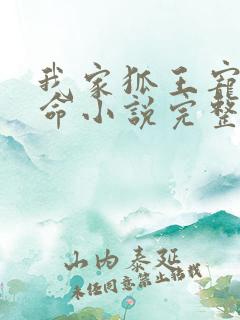 我家狐王寵
命小說完整
山内泰延
未任同意禁止轉載